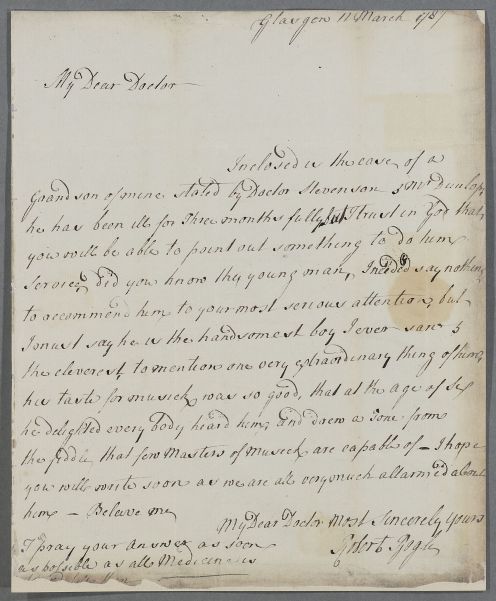 Glasgow 11 March 1787
My Dear Doctor
Inclosed is the case of a
Grandson of mine stated by Doctor Stevenson & Mr Dunlop,
he has been ill for Three months fully, but I trust in God that
you will be able to point out something to do him
Service, did you know this young man, I needed say nothing
to recommend him to your most serious attention, but
I must say he is the handsomest boy I ever saw &
the cleverest, to mention one very extraordinary thing of him,
his taste for musick was so good, that at the age of six
he delighted every body heard him, and drew a tone from
the fiddle, that few Masters of Musick are capable of – I hope
you will write soon as we are all very much allarmed about
him – Beleive me
My Dear Doctor Most Sincerely Yours
Robert Bogle
I pray your answer as soon
as possible as all Medicine is